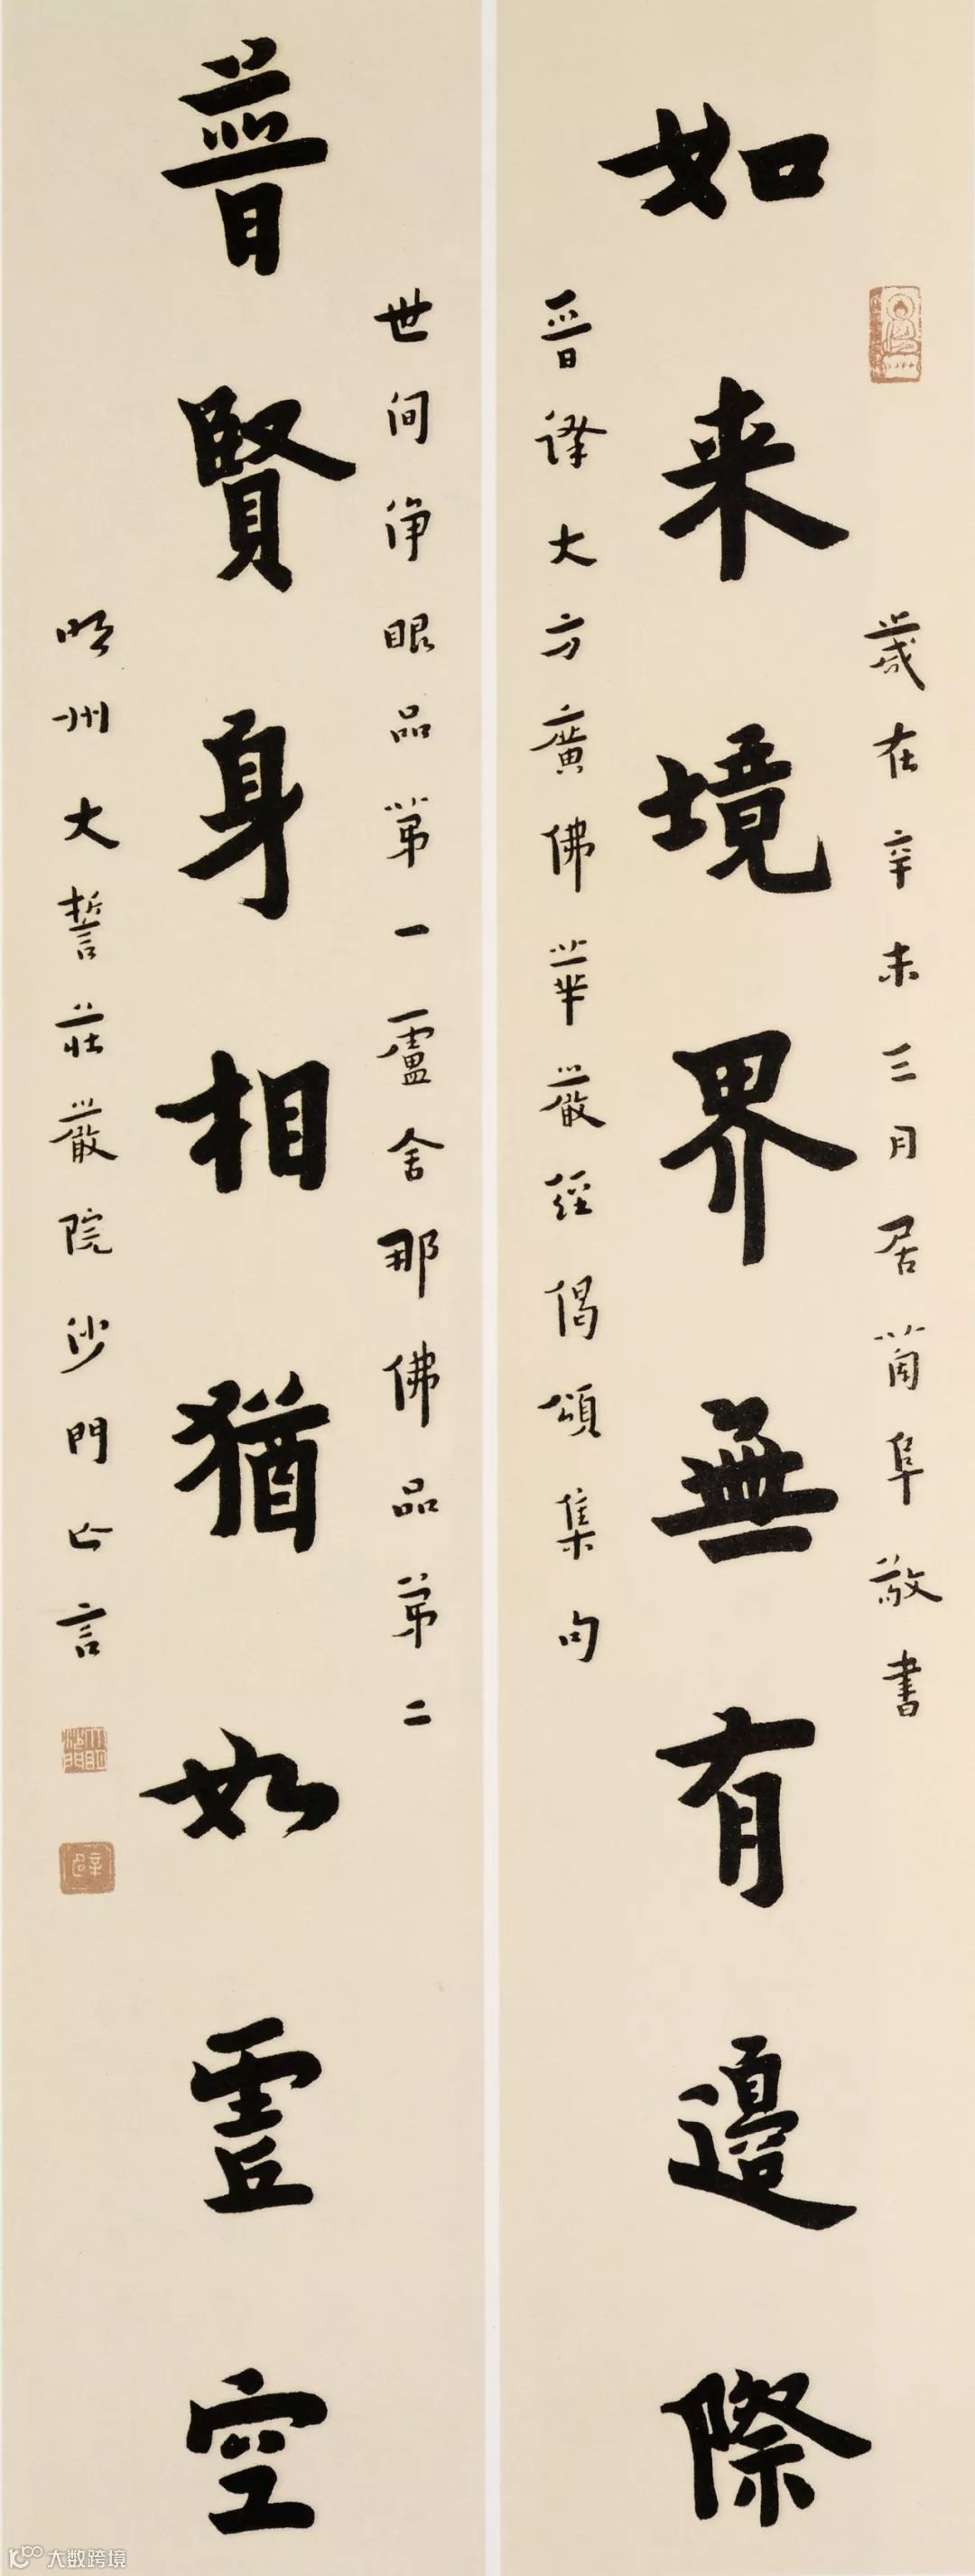 歲在辛未三月居蘭阜敬書
如来境界無有邊際
晉譯大方廣佛華嚴經偈頌集句
世间淨眼品第一盧舍那佛品第二
普賢身相猶如虛空
明州大誓莊嚴院沙門亡言
大数跨境